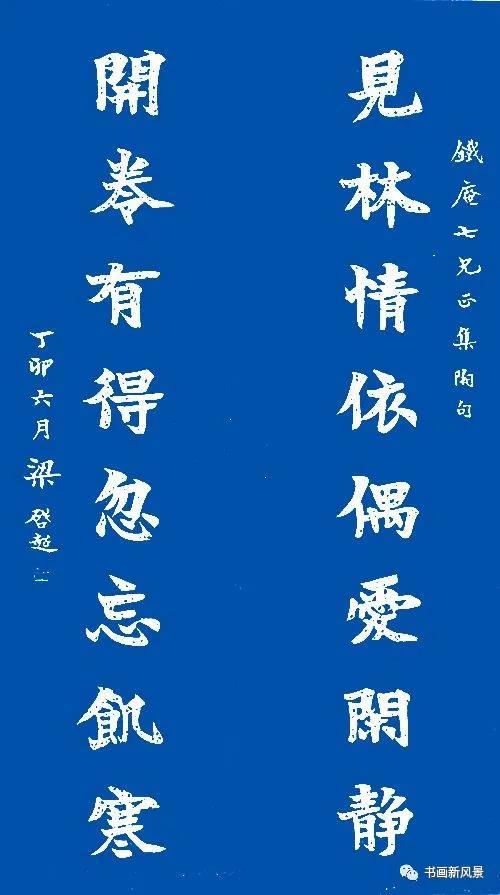 鐵庵七兄正集陶句
見林情依偶愛閑静
開卷有得忽忘飢寒
丁卯六月梁啓超
书画新风景